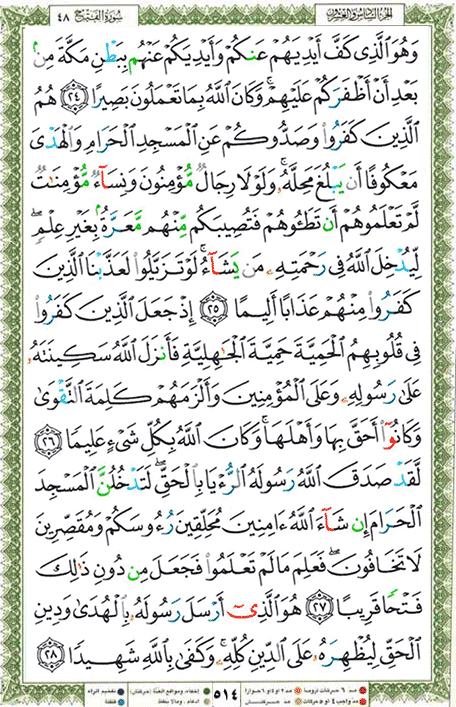 الجزء السادس والعشرون سورة الفتح ٤٨
وَهُوَ ٱلَّذِى كَفَّ أَيْدِيَهُمْ عَنكُمْ وَأَيْدِيَكُمْ عَنْهُم بِبَطْنِ مَكَّةَ مِنۢ
بَعْدِ أَنْ أَظْفَرَكُمْ عَلَيْهِمْ ۚ وَكَانَ ٱللَّهُ بِمَا تَعْمَلُونَ بَصِيرًا ٢٤ هُمُ
ٱلَّذِينَ كَفَرُوا۟ وَصَدُّوكُمْ عَنِ ٱلْمَسْجِدِ ٱلْحَرَامِ وَٱلْهَدْىَ
مَعْكُوفًا أَن يَبْلُغَ مَحِلَّهُۥ ۚ وَلَوْلَا رِجَالٌ مُّؤْمِنُونَ وَنِسَآءٌ مُّؤْمِنَـٰتٌ
لَّمْ تَعْلَمُوهُمْ أَن تَطَـُٔوهُمْ فَتُصِيبَكُم مِّنْهُم مَّعَرَّةٌۢ بِغَيْرِ عِلْمٍ ۖ
لِّيُدْخِلَ ٱللَّهُ فِى رَحْمَتِهِۦ مَن يَشَآءُ ۚ لَوْ تَزَيَّلُوا۟ لَعَذَّبْنَا ٱلَّذِينَ
كَفَرُوا۟ مِنْهُمْ عَذَابًا أَلِيمًا ٢٥ إِذْ جَعَلَ ٱلَّذِينَ كَفَرُوا۟
فِى قُلُوبِهِمُ ٱلْحَمِيَّةَ حَمِيَّةَ ٱلْجَـٰهِلِيَّةِ فَأَنزَلَ ٱللَّهُ سَكِينَتَهُۥ
عَلَىٰ رَسُولِهِۦ وَعَلَى ٱلْمُؤْمِنِينَ وَأَلْزَمَهُمْ كَلِمَةَ ٱلتَّقْوَىٰ
وَكَانُوٓا۟ أَحَقَّ بِهَا وَأَهْلَهَا ۚ وَكَانَ ٱللَّهُ بِكُلِّ شَىْءٍ عَلِيمًا ٢٦
لَّقَدْ صَدَقَ ٱللَّهُ رَسُولَهُ ٱلرُّءْيَا بِٱلْحَقِّ ۖ لَتَدْخُلُنَّ ٱلْمَسْجِدَ
ٱلْحَرَامَ إِن شَآءَ ٱللَّهُ ءَامِنِينَ مُحَلِّقِينَ رُءُوسَكُمْ وَمُقَصِّرِينَ
لَا تَخَافُونَ ۖ فَعَلِمَ مَا لَمْ تَعْلَمُوا۟ فَجَعَلَ مِن دُونِ ذَٰلِكَ
فَتْحًا قَرِيبًا ٢٧ هُوَ ٱلَّذِىٓ أَرْسَلَ رَسُولَهُۥ بِٱلْهُدَىٰ وَدِينِ
ٱلْحَقِّ لِيُظْهِرَهُۥ عَلَى ٱلدِّينِ كُلِّهِۦ ۚ وَكَفَىٰ بِٱللَّهِ شَهِيدًا ٢٨
٥١٤